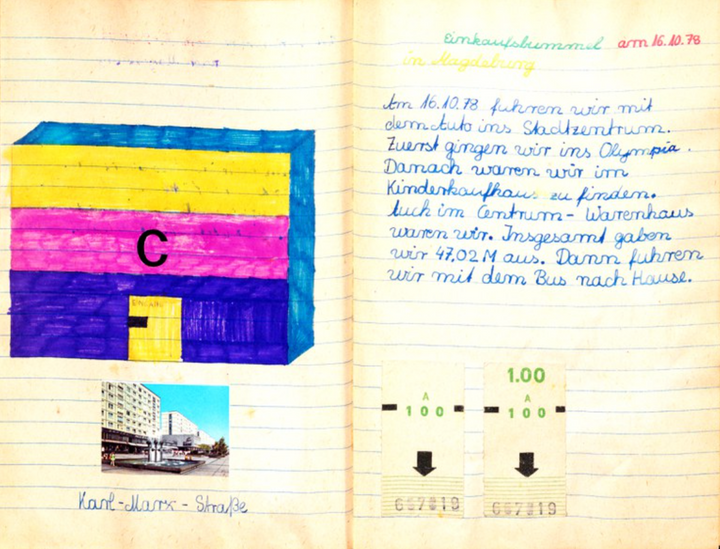 C
EINGANG
Karl-Marx-Straße
Einkaufsbummel am 16.10.78
in Magdeburg
Am 16.10.78 fuhren wir mit
dem Auto ins Stadtzentrum.
Zuerst gingen wir ins Olympia.
Danach waren wir im
Kinderkaufhaus zu finden.
Auch im Centrum-Warenhaus
waren wir. Insgesamt gaben
wir 47,02 M aus. Dann fuhren
wir mit dem Bus nach Hause.
A
100
1.00
A
100